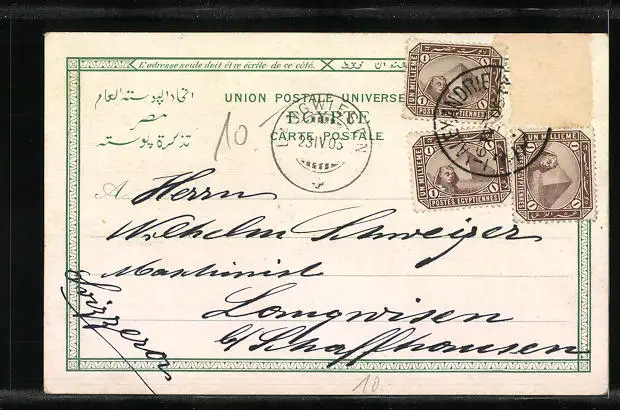 L'adresse seule doit être écrite de ce côté.
اتحاد البوسته العام
مصر
تذكرة بوسته
UNION POSTALE UNIVERSE
EGYPTE
CARTE POSTALE
10
23 IV 03
UN MILLIEME
1 1
UN MILLIEME
1 1
POSTES EGYPTIENNES
UN MILLIEME
1 1
POSTES EGYPTIENNES
ALEXANDRIE
A Herrn
Wilhelm Schweizer
Maschinist
Langwisen
b/ Schaffhausen
Svizzera
10